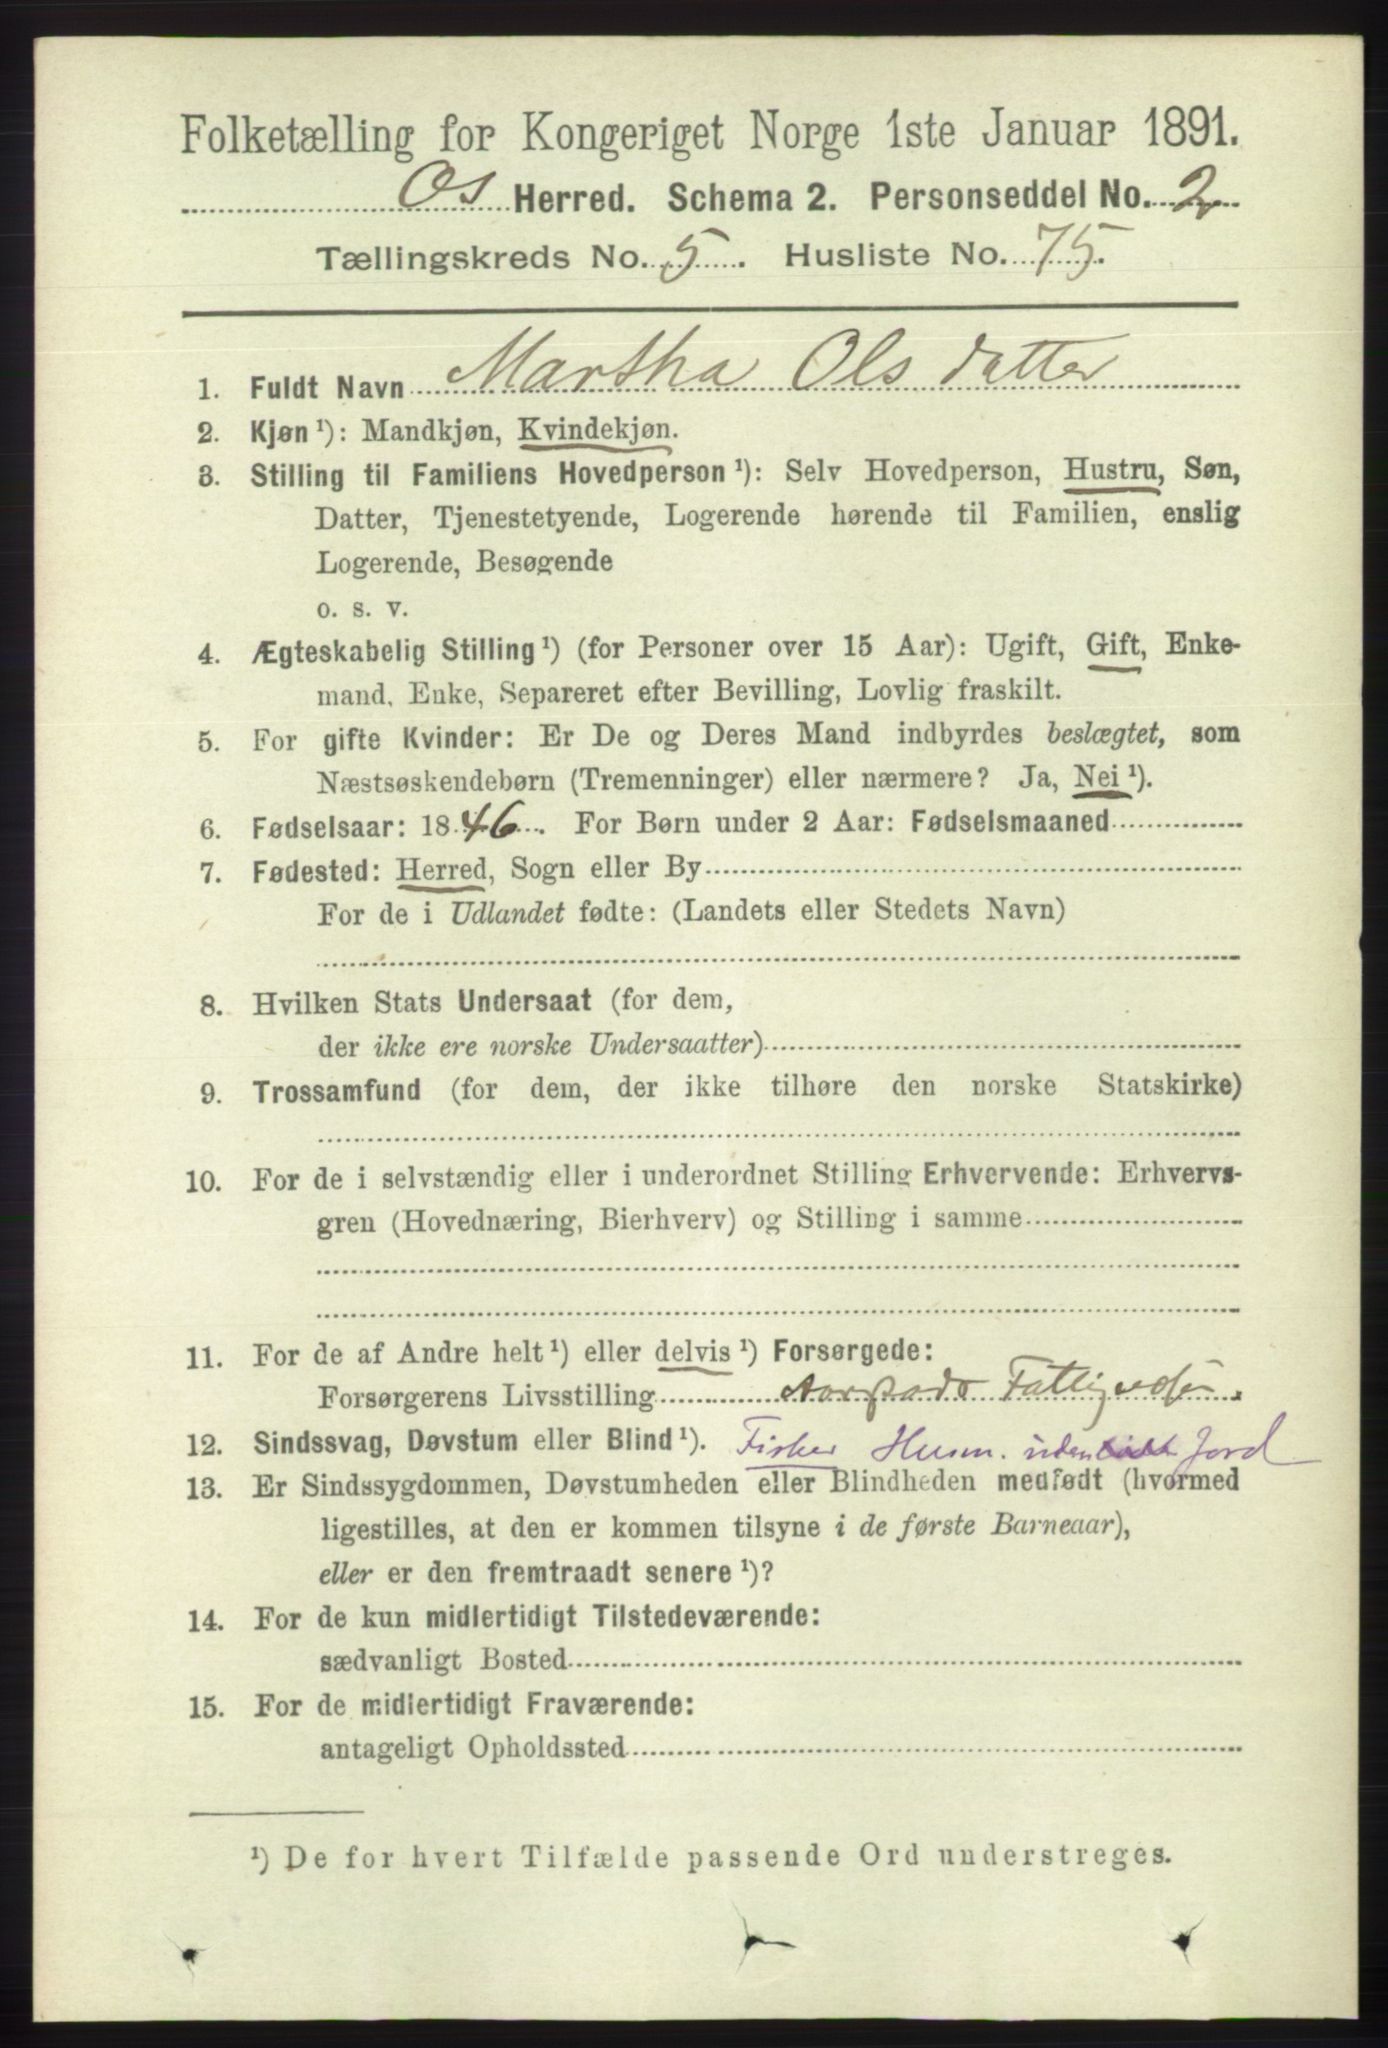 Folketælling for Kongeriget Norge 1ste Januar 1891.
Os Herred. Schema 2. Personseddel No. 2
Tællingskreds No. 5. Husliste No. 75.
1. Fuldt Navn Martha Olsdatter
2. Kjøn ¹): Mandkjøn, Kvindekjøn.
3. Stilling til Familiens Hovedperson ¹): Selv Hovedperson, Hustru, Søn,
Datter, Tjenestetyende, Logerende hørende til Familien, enslig
Logerende, Besøgende
o. s. v.
4. Ægteskabelig Stilling ¹) (for Personer over 15 Aar): Ugift, Gift, Enke-
mand, Enke, Separeret efter Bevilling, Lovlig fraskilt.
5. For gifte Kvinder: Er De og Deres Mand indbyrdes beslægtet, som
Næstsøskendebørn (Tremenninger) eller nærmere? Ja, Nei ¹).
6. Fødselsaar: 1846. For Børn under 2 Aar: Fødselsmaaned
7. Fødested: Herred, Sogn eller By
For de i Udlandet fødte: (Landets eller Stedets Navn)
8. Hvilken Stats Undersaat (for dem,
der ikke ere norske Undersaatter)
9. Trossamfund (for dem, der ikke tilhøre den norske Statskirke)
10. For de i selvstændig eller i underordnet Stilling Erhvervende: Erhvervs-
gren (Hovednæring, Bierhverv) og Stilling i samme
11. For de af Andre helt ¹) eller delvis ¹) Forsørgede:
Forsørgerens Livsstilling
12. Sindssvag, Døvstum eller Blind ¹). Fisker Husm. uden Jord
13. Er Sindssygdommen, Døvstumheden eller Blindheden medfødt (hvormed
ligestilles, at den er kommen tilsyne i de første Barneaar),
eller er den fremtraadt senere ¹)?
14. For de kun midlertidigt Tilstedeværende:
sædvanligt Bosted
15. For de midlertidigt Fraværende:
antageligt Opholdssted
¹) De for hvert Tilfælde passende Ord understreges.